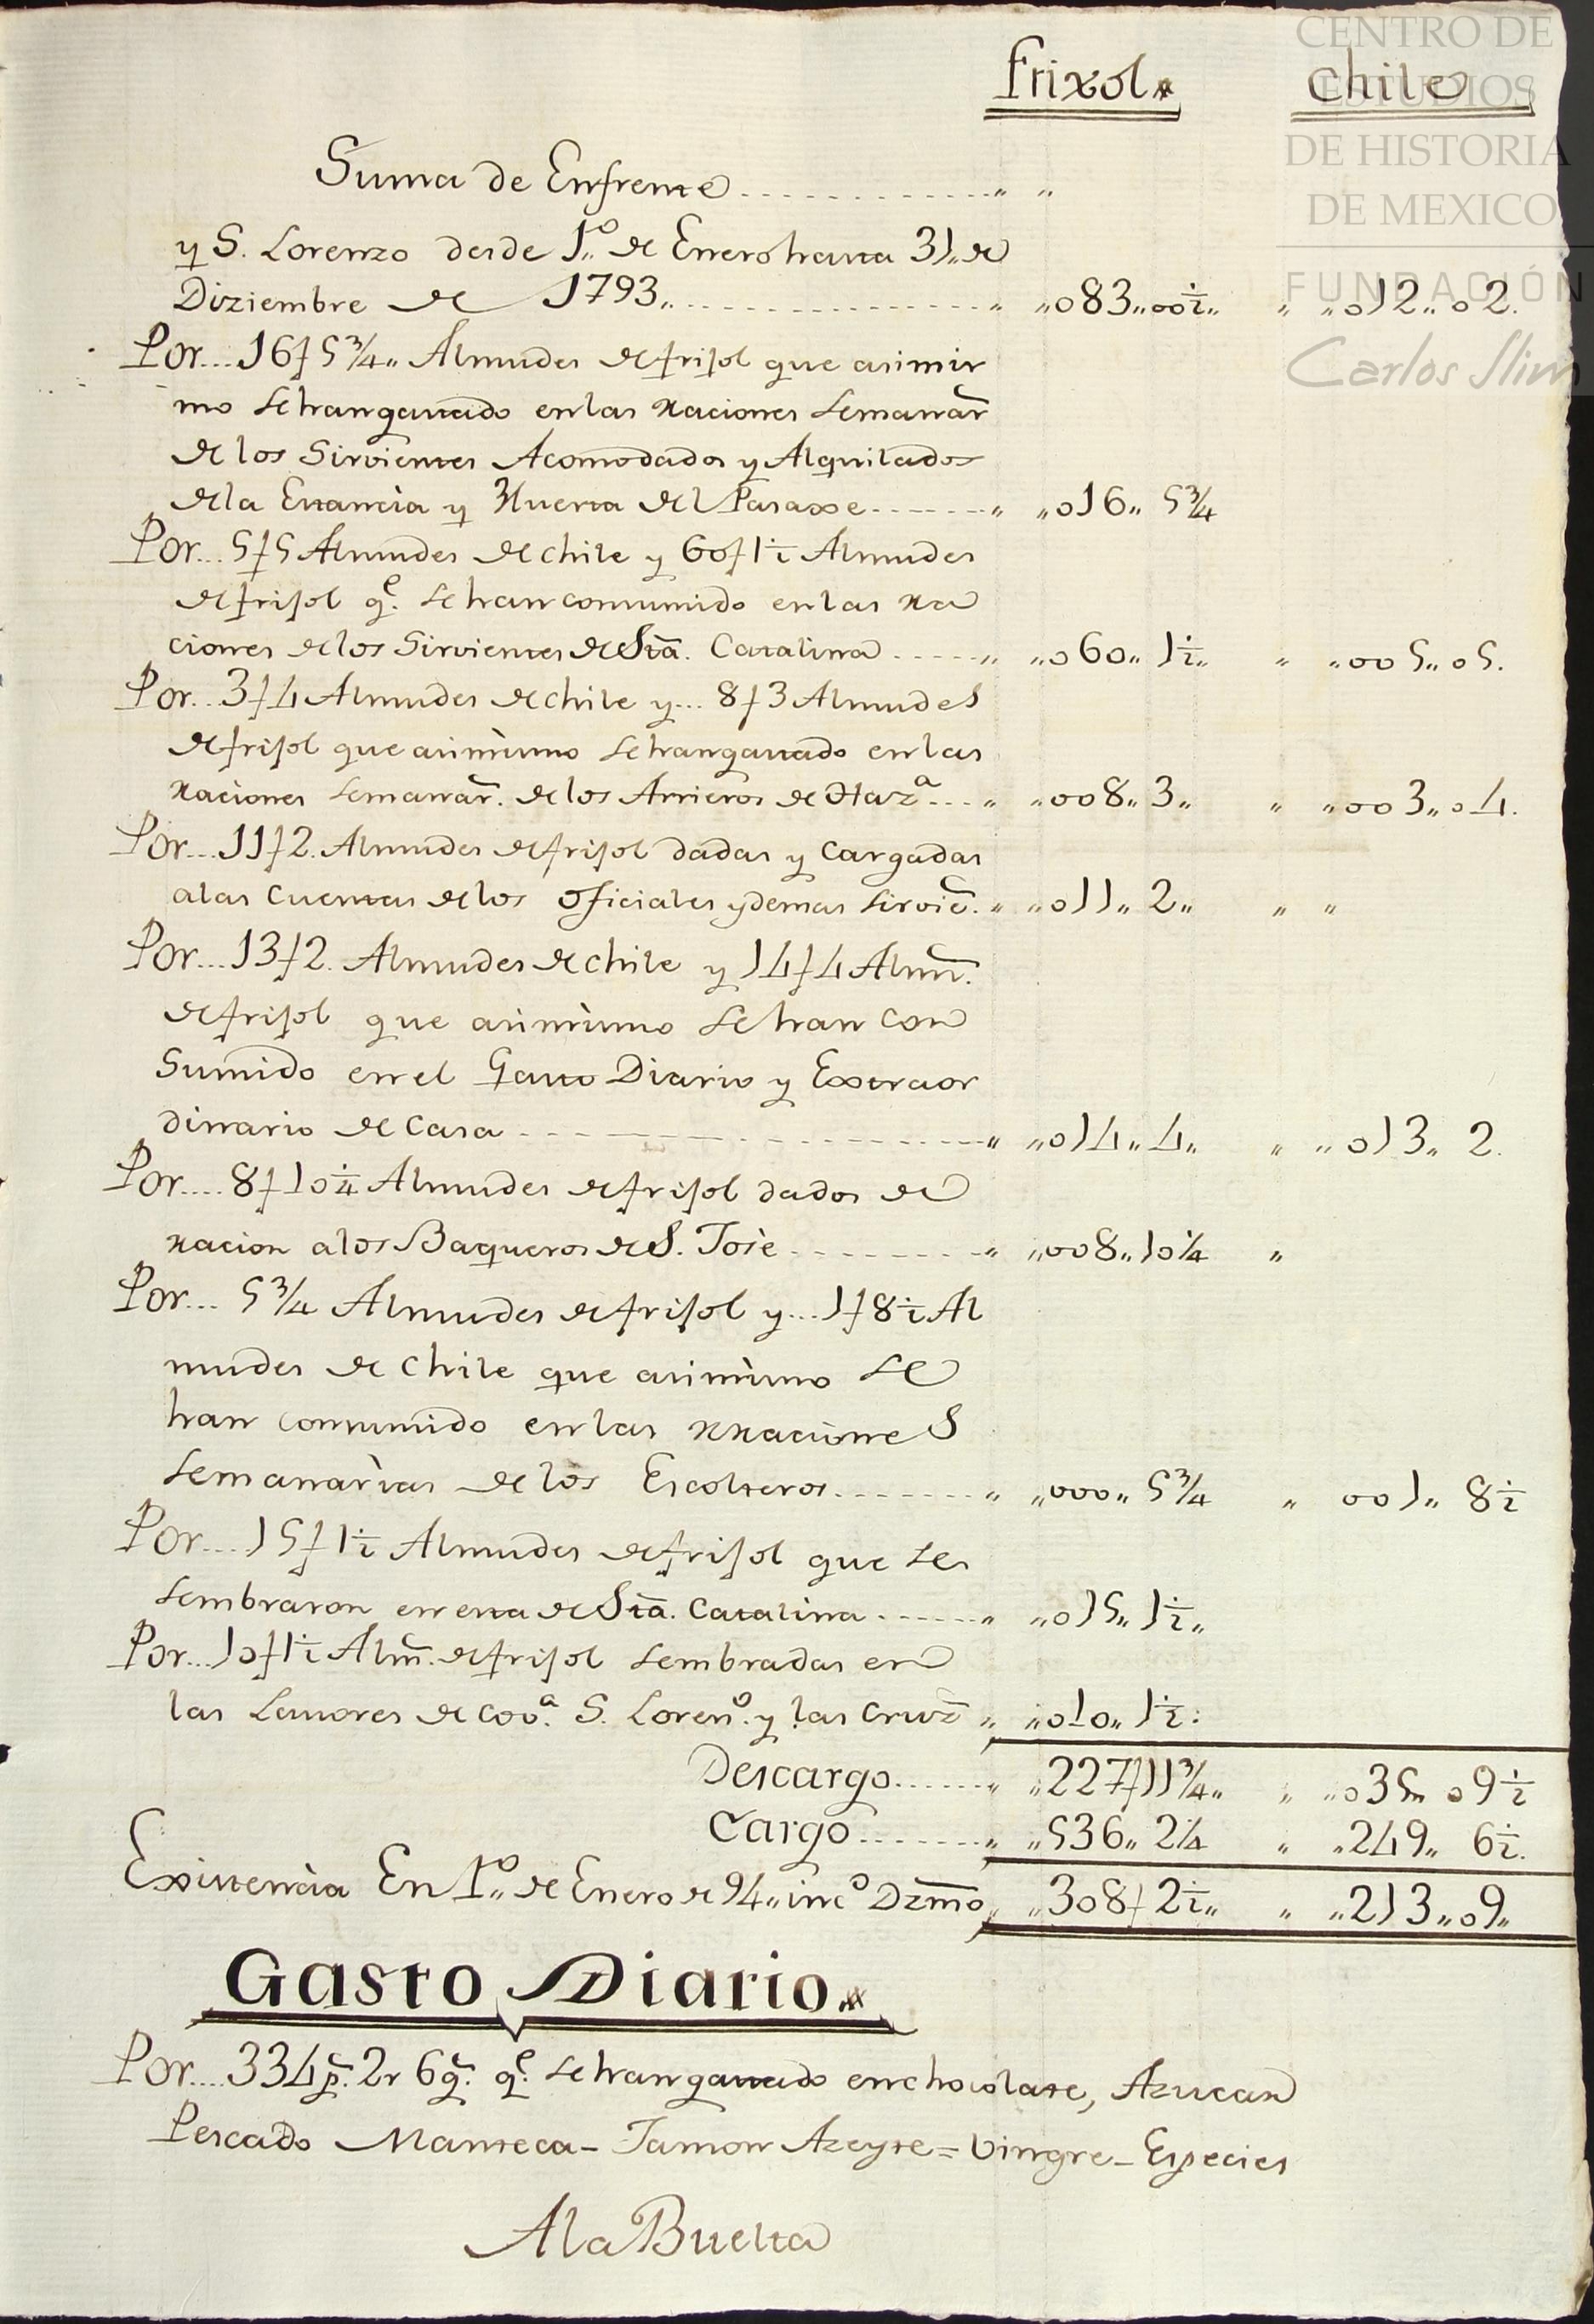 CENTRO DE
ESTUDIOS
DE HISTORIA
DE MEXICO
FUNDACIÓN
Carlos Slim
Frixol. Chile
Suma de Enfrente............ „ „
y S. Lorenzo desde 1.º de Enero hasta 31„ de
Diziembre de 1793„............ „ „083„00½„ „ „012„02.
Por...16f 5¾„ Almudes de frisol que asimis
mo se han gastado en las raciones semanar.
de los Sirvientes Acomodados y Alquilados
de la Estancia y Huerta del Paraxe....... „ „016„ 5¾
Por...5f5 Almudes de chile y 60f1½ Almudes
de frisol q.e se han consumido en las ra
ciones de los Sirvientes de Sta. Catalina..... „ „060„ 1½„ „ „005„05.
Por...3f4 Almudes de chile y... 8f3 Almudes
de frisol que asimismo se han gastado en las
raciones semanar. de los Arrieros de Haz.a... „ „008„3„ „ „003„04.
Por...11f2. Almudes de frisol dadas y cargadas
a las cuentas de los oficiales y demas sirvie. „ „011„2„ „ „
Por...13f2. Almudes de chile y 14f4 Alm.
de frisol que asimismo se han con
sumido en el Gasto Diario y Extraor
dinario de casa............ „ „014„4„ „ „013„ 2.
Por....8f10¼ Almudes de frisol dados de
racion a los Baqueros de S. José......... „ „008„10¼ „
Por... 5¾ Almudes de frisol y...1f8½ Al
mudes de chile que asimismo se
han consumido en las rraciones
semanarias de los Escolteros........ „ „000„ 5¾ „ 001„ 8½
Por...15f1½ Almudes de frisol que se
sembraron en esta de Sta. Catalina...... „ „015„1½„
Por...10f1½ Alm. de frisol sembradas en
las Lavores de Cov.a S. Loren.o y las Cruz „ „010„1½:
Descargo...... „ „227f11¾„ „ „035„ 09½
Cargo........ „ „536„ 2¼ „ „249„ 6½.
Existencia En 1.º de Enero de 94„ inc.o Dzmo „ „308f2½„ „ „213„09„
Gasto Diario.
Por...334p.s 2r 6g.s q.e se han gastado en chocolate, Azucar
Pescado Manteca- Jamon Azeyte= Vingre- Especies
A la Buelta